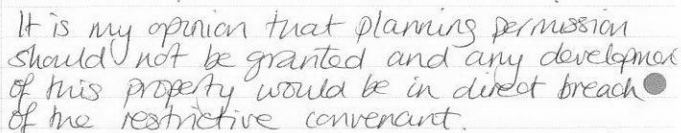 It is my opinion that planning permission
should not be granted and any developmen
of this property would be in direct breach
of the restrictive convenant.